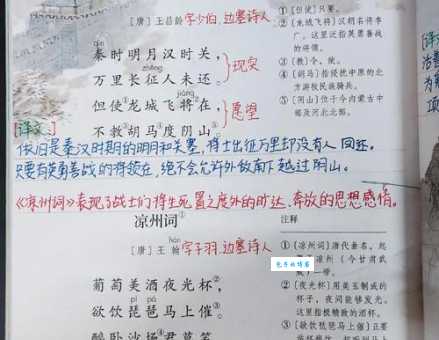 [唐] 王昌龄 字少伯,边塞诗人
qín
秦时明月汉时关,
zhēng
万里长征人未还。
现实
jiàng
但使龙城飞将在,
不教胡马度阴山。
愿望
①[但使]只要。
②[龙城飞将]汉朝名将李
广。这里泛指英勇善战
的将领。
③[教]令,使。
④[胡马]指侵扰中原的北
方游牧民族骑兵。
⑤[阴山]位于今内蒙古中
部及河北北部。
[译文]
依旧是秦汉时期的明月和关塞,将士出征万里却没有人回还。
只要有英勇善战的将领在,绝不会允许外敌南下越过阴山。
《凉州词》表现了战士们将生死置之度外的旷达、奔放的思想感情。
凉州词①
hàn
[唐] 王翰 字子羽,边塞诗人
葡萄美酒夜光杯②,
pí pá
欲饮琵琶马上催③。
醉卧沙场④君莫笑
注释
①[凉州词]唐代曲名,起
凉州(今甘肃武
威)一带。
②[夜光杯]用美玉制成的
杯子,夜间能够发光。
这里指极精致的酒杯。
③[欲饮琵琶马上催]正要